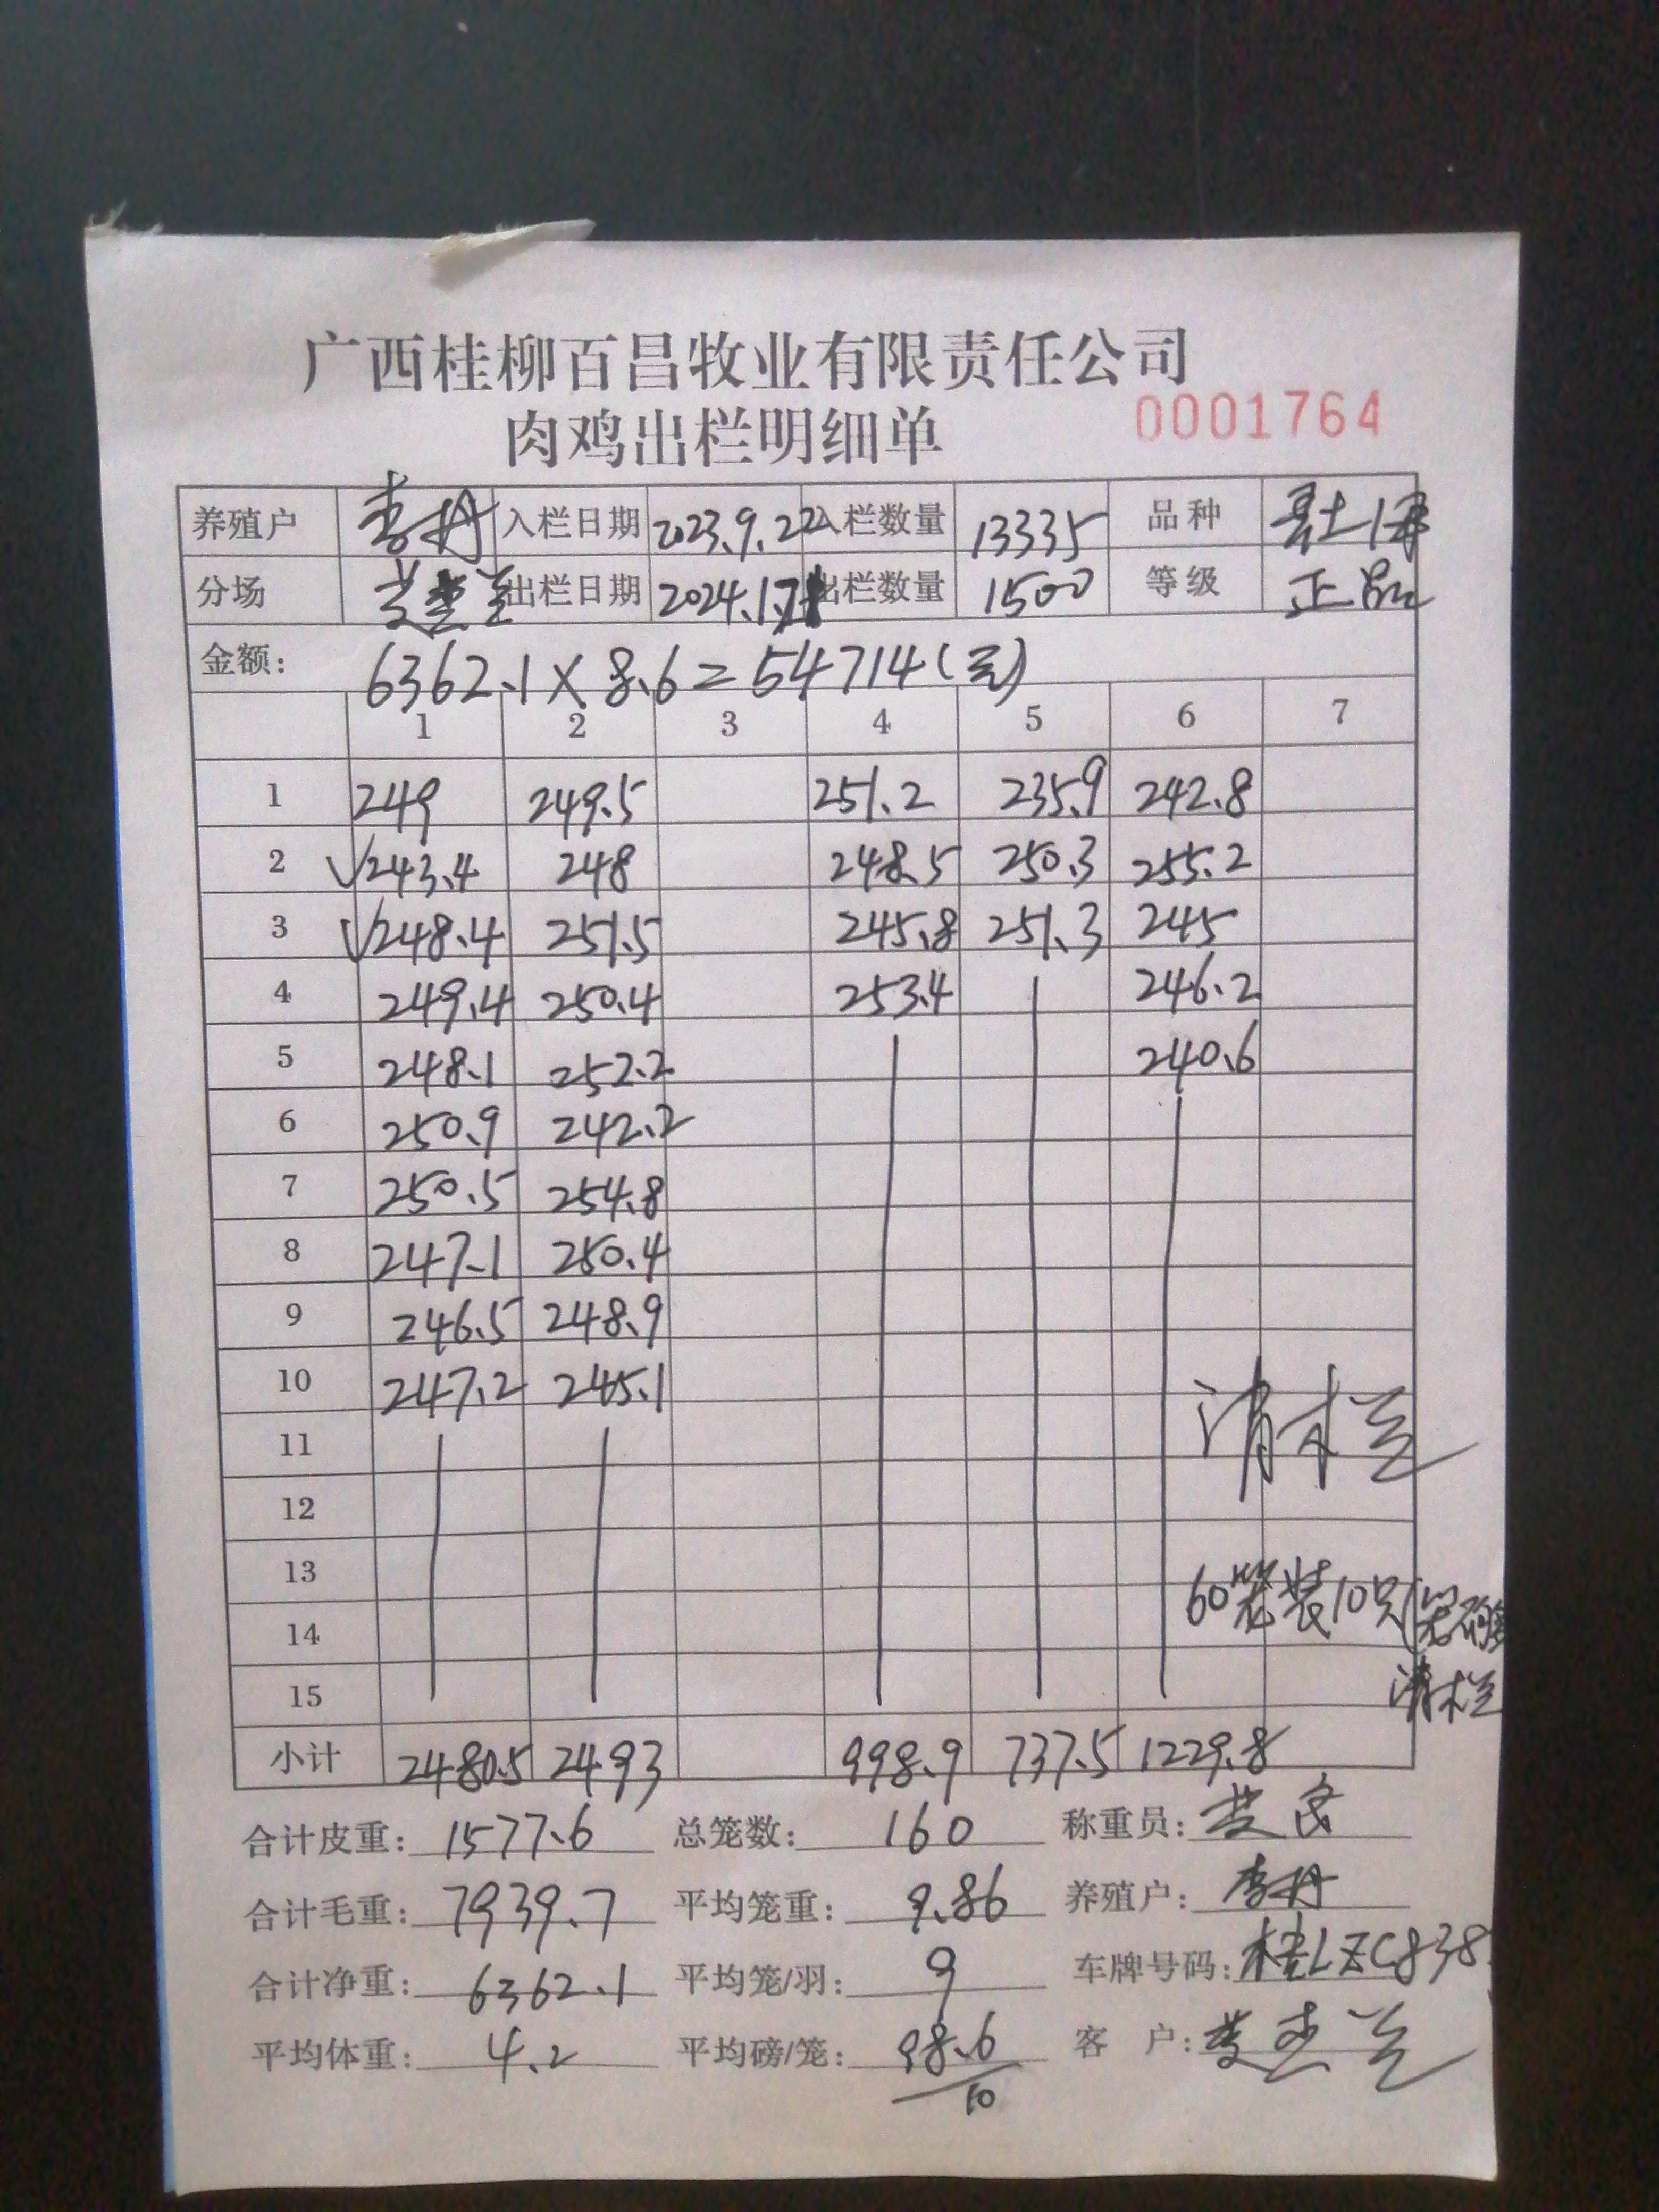 广西桂柳百昌牧业有限责任公司
肉鸡出栏明细单 0001764
养殖户 李丹 入栏日期 2023.9.22 入栏数量 13335 品种 土1号
分场 出栏日期 2024.1. 出栏数量 1500 等级 正品
金额: 6362.1×8.6=54714(元)
1 2 3 4 5 6 7
1 249 249.5 251.2 235.9 242.8
2 √243.4 248 248.5 250.3 255.2
3 √248.4 251.5 245.8 251.3 245
4 249.4 250.4 253.4 246.2
5 248.1 252.2 240.6
6 250.9 242.2
7 250.5 254.8
8 247.1 250.4
9 246.5 248.9
10 247.2 245.1
11 清栏
12
13 60笼装10只
14
15 清栏
小计 2480.5 2493 998.9 737.5 1229.8
合计皮重: 1577.6 总笼数: 160 称重员:
合计毛重: 7939.7 平均笼重: 9.86 养殖户: 李丹
合计净重: 6362.1 平均笼/羽: 9 车牌号码: 桂LZC838
平均体重: 4.2 平均磅/笼: 98.6 客 户:
10